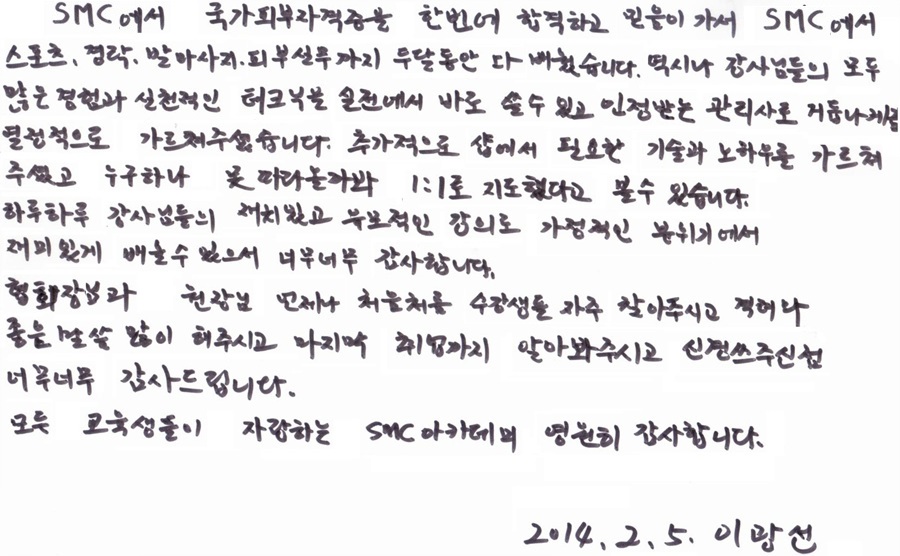 SMC에서 국가피부자격증을 한번에 합격하고 믿음이 가서 SMC에서
스포츠, 경락, 발마사지, 피부실무까지 두달동안 다 배웠습니다. 역시나 강사님들의 모두
많은 경험과 실천적인 테크닉을 실전에서 바로 쓸수 있고 인정받는 관리사로 거듭나게끔
열정적으로 가르쳐주셨습니다. 추가적으로 샵에서 필요한 기술과 노하우를 가르쳐
주셨고 누구하나 못 따라올가봐 1:1로 지도했다고 볼수 있습니다.
하루하루 강사님들의 재치있고 유모적인 강의로 가정적인 분위기에서
재미있게 배울수 있으서 너무너무 감사합니다.
협회장님과 원장님 언제나 처음처름 수강생들 자주 찾아주시고 격려나
좋은 말씀 많이 해주시고 마지막 취업까지 알아봐주시고 신경쓰주신점
너무너무 감사드립니다.
모든 교육생들이 자랑하는 SMC아카데미 영원히 감사합니다.
2014. 2. 5. 이광선